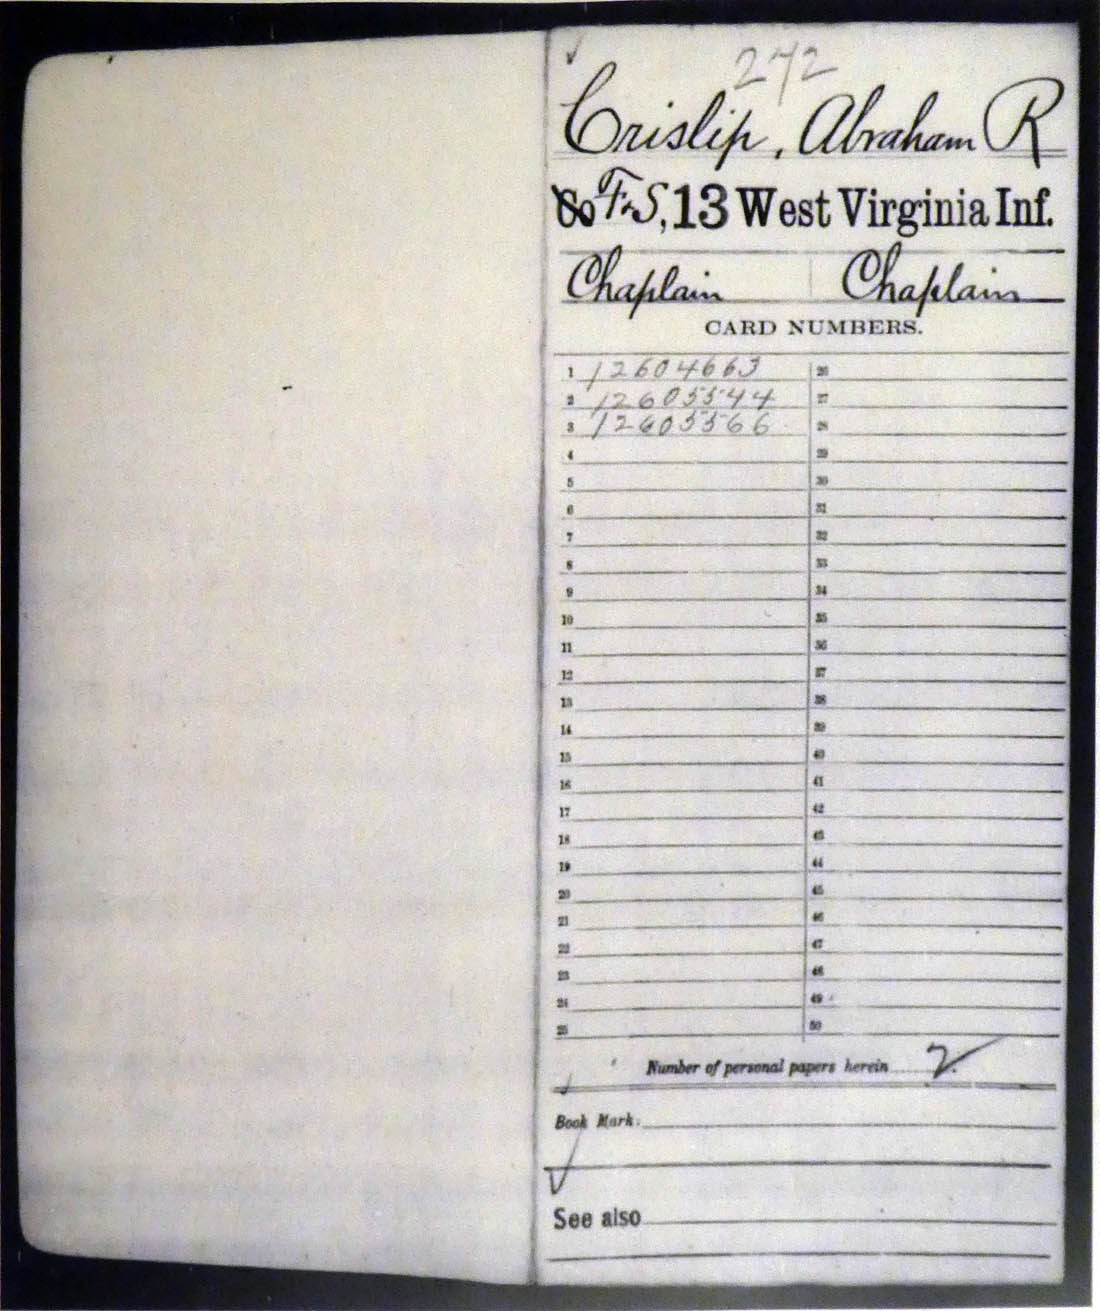 242
Crislip, Abraham R
Co F&S, 13 West Virginia Inf.
Chaplain Chaplain
CARD NUMBERS.
1 12604663 26
2 12605544 27
3 12605566 28
4 29
5 30
6 31
7 32
8 33
9 34
10 35
11 36
12 37
13 38
14 39
15 40
16 41
17 42
18 43
19 44
20 45
21 46
22 47
23 48
24 49
25 50
Number of personal papers herein 2
Book Mark:
See also